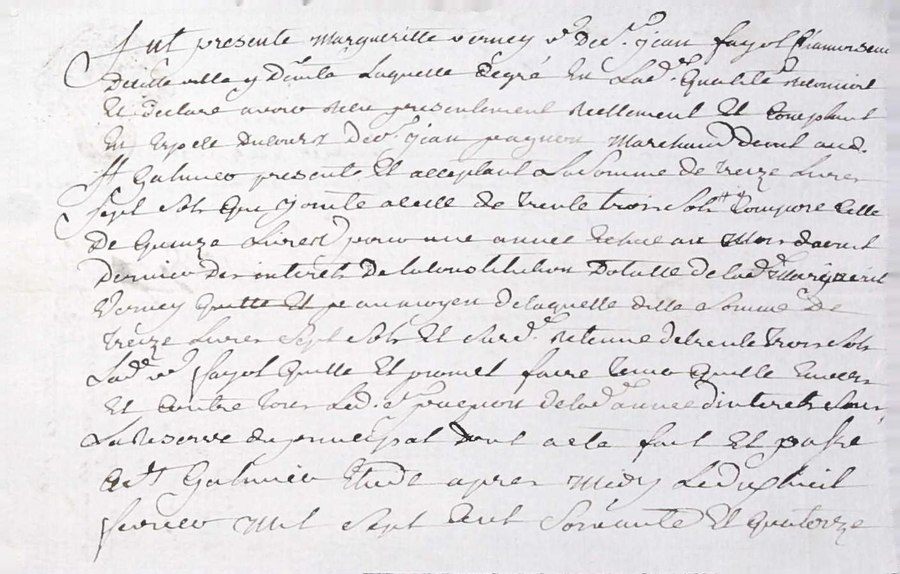 Fut presente Margueritte Verney v.e de s.r jean fayol Chamoiseur
de cette ville y dem.te Laquelle de gré En Lad.e Qualité reconnoit
Et declare avoir reçu presentement reellement Et comptant
En Espece du cours de s.r jean pagnon Marchand dem.t aud.
S.t Galmier present Et acceptant La Somme de treize Livres
Sept Sols Que jointe a celle de trente trois Sols compose celle
De Quinze Livres pour une année Echue au Mois
dernier des interets De la Constitution Dotalle de lad.e Margueritte
Verney Quitte Et p au moyen de laquelle ditte Somme De
treize Livres Sept Sols Et Sus d.e retenue de trente trois Sols
Lad.e v.e fayol Quitte Et promet faire tenir Quitte Envers
Et Contre tous Led. s.r pagnon de lad.e année d'interets Sous
La Reserve du principal dont acte fait Et passé
a S.t Galmier Etude apres Midy Le dixhuit
fevrier Mil Sept Cent Soixante Et Quatorze